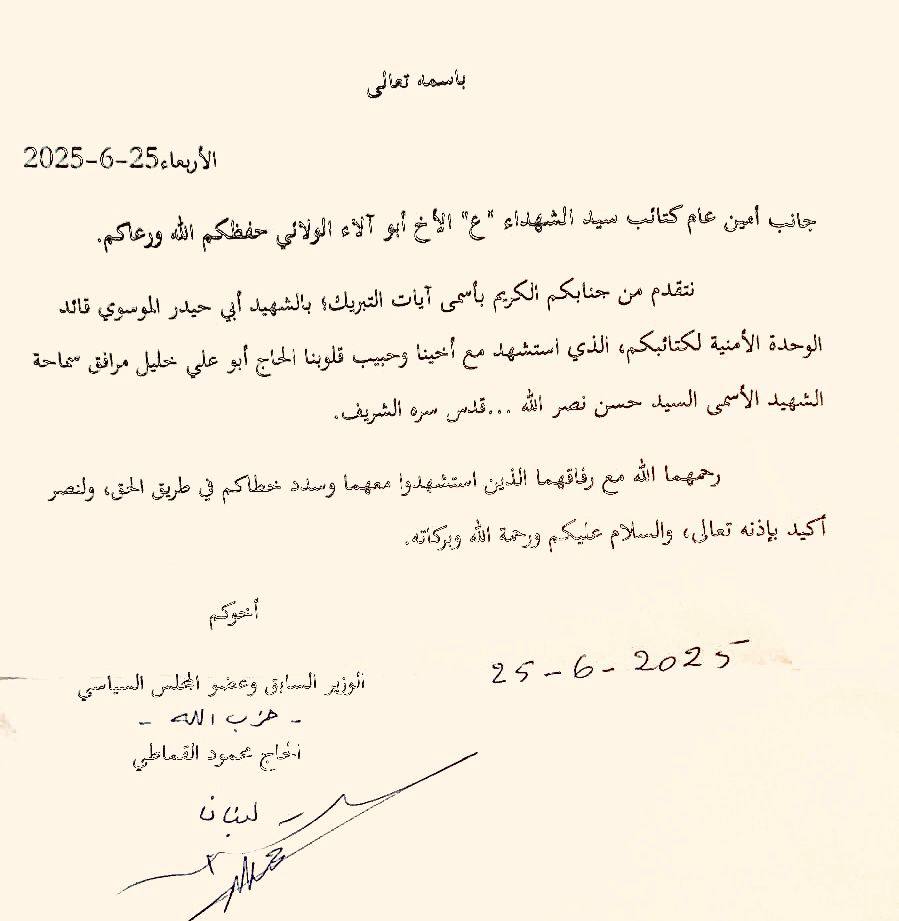 باسمه تعالى
الأربعاء25-6-2025
جانب أمين عام كتائب سيد الشهداء "ع" الأخ أبو آلاء الولائي حفظكم الله ورعاكم.
نتقدم من جنابكم الكريم بأسمى آيات التبريك؛ بالشهيد أبي حيدر الموسوي قائد
الوحدة الأمنية لكتائبكم، الذي استشهد مع أخينا وحبيب قلوبنا الحاج أبو علي خليل مرافق سماحة
الشهيد الأسمى السيد حسن نصر الله ...قدس سره الشريف.
رحمهما الله مع رفاقهما الذين استشهدوا معهما وسدد خطاكم في طريق الحق، ولنصر
أكيد بإذنه تعالى، والسلام عليكم ورحمة الله وبركاته.
أخوكم
25-6-2025
الوزير السابق وعضو المجلس السياسي
- حزب الله -
الحاج محمود القماطي
لبنان